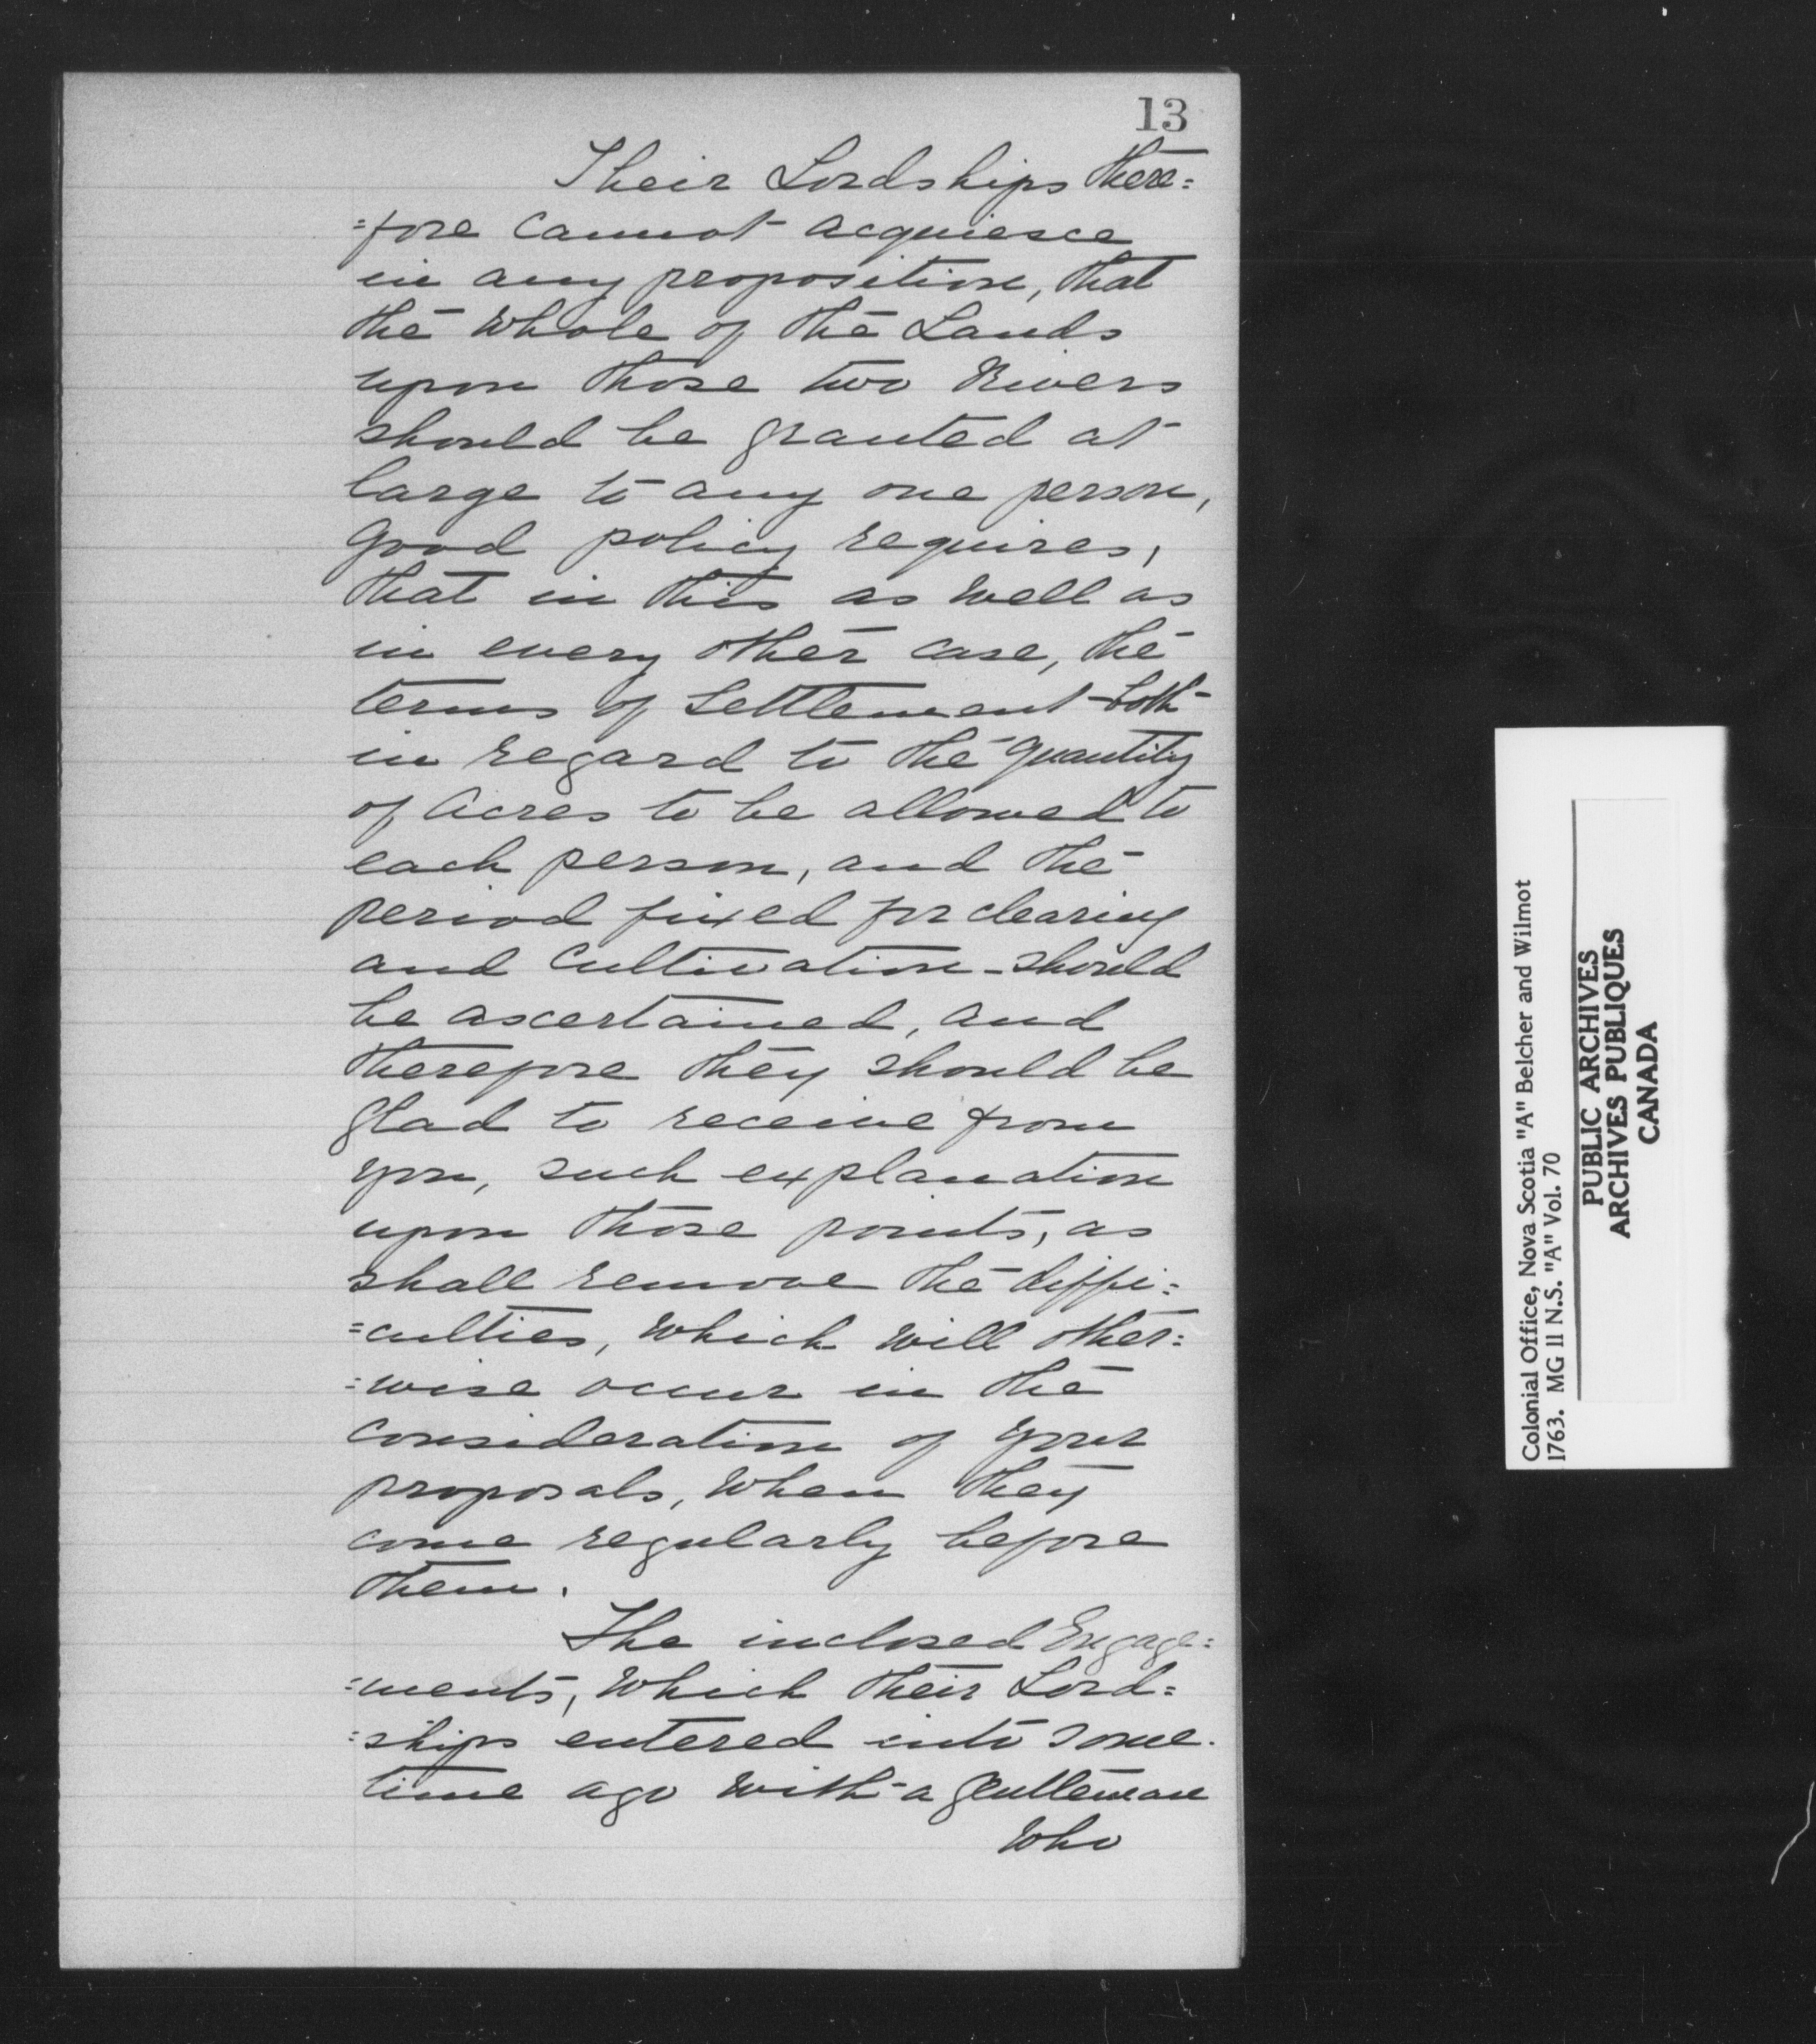 13
Their Lordships there=
=fore cannot acquiesce
in any proposition, that
the whole of the Lands
upon those two Rivers
should be granted at
large to any one person,
good policy requires,
that in this as well as
in every other case, the
terms of Settlement - both -
in regard to the Quantity
of Acres to be allowed to
each person, and the
period fixed for clearing
and Cultivation - should
be ascertained, and
therefore they should be
glad to receive from
you, such explanation
upon those points, as
shall remove the diffi=
=culties, which will other=
=wise occur in the
consideration of your
proposals, when they
come regularly before
them.
The inclosed Engage=
=ments, which their Lord=
=ships entered into some
time ago with a gentleman
who
Colonial Office, Nova Scotia "A" Belcher and Wilmot
1763. MG 11 N.S. "A" Vol. 70
PUBLIC ARCHIVES
ARCHIVES PUBLIQUES
CANADA